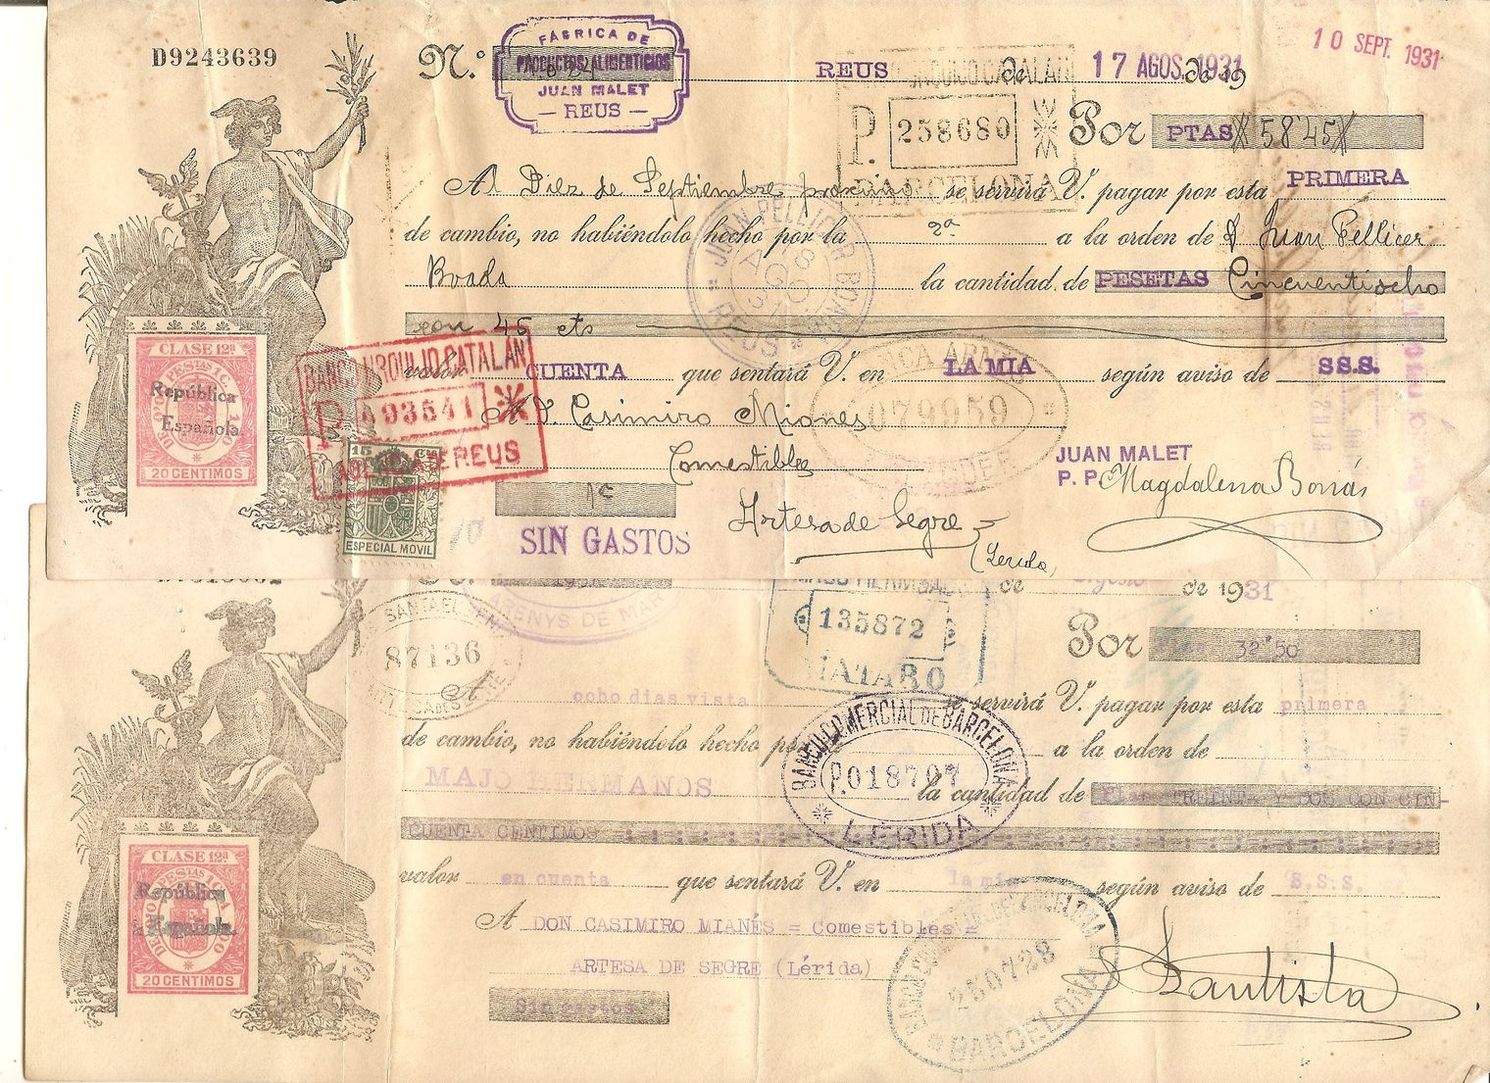 D9243639
N.º
FÁBRICA DE
PRODUCTOS ALIMENTICIOS
JUAN MALET
— REUS —
REUS de 17 AGOS. 1931 de 19
10 SEPT. 1931
P. 258680
BARCELONA
Por PTAS 58'45
Al Diez de Septiembre próximo se servirá V. pagar por esta PRIMERA
de cambio, no habiéndolo hecho por la 2ª a la orden de D Juan Pellicer
Boada la cantidad de PESETAS Cincuentiocho
con 45 cts
JUAN PELLICER
18
AGO
REUS
valor CUENTA que sentará V. en LA MIA según aviso de SS.S.
BANCO URQUIJO CATALAN
P. 493541
AGENCIA DE REUS
079959
CLASE 12ª
República
Española.
20 CENTIMOS
15 Cts
ESPECIAL MOVIL
A V. Casimiro Mianes
Comestibles
Artesa de Segre
(Lerida)
JUAN MALET
P. P. Magdalena Borrás
SIN GASTOS
1931
ARENYS DE MAR
de de 1931
87136
135872
MATARO
Por Ptas 32'50
A ocho dias vista se servirá V. pagar por esta primera
de cambio, no habiéndolo hecho por a la orden de
MAJO HERMANOS la cantidad de Ptas TREINTA Y DOS CON CIN-
CUENTA CENTIMOS
BANCO COMERCIAL DE BARCELONA
P.018707
LÉRIDA
valor en cuenta que sentará V. en la mia según aviso de S.S.S.
CLASE 12ª
República
Española.
20 CENTIMOS
A DON CASIMIRO MIANÉS = Comestibles =
ARTESA DE SEGRE (Lérida)
Sin gastos
280728
BARCELONA
Bautista